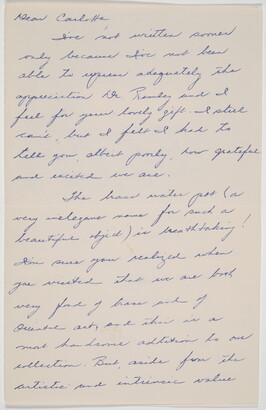 Dear Carlotta
I've not written sooner
only because I've not been
able to express adequately the
appreciation Dr. Remley and I
feel for your lovely gift. I still
can't, but I felt I had to
tell you, albeit poorly, how grateful
and excited we are.
The brass water pot (a
very inelegant name for such a
beautiful object) is breathtaking!
I'm sure you realized when
you visited that we are both
very fond of brass and of
Oriental art, and this is a
most handsome addition to our
collection. But, aside from the
artistic and intrinsic value